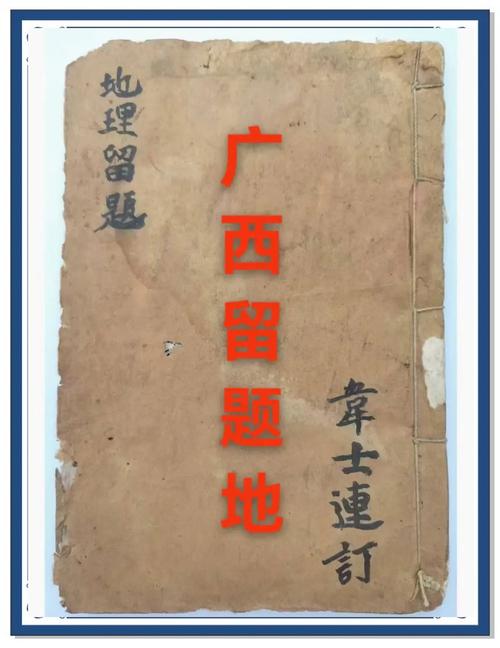 地理留题
广西留题地
韋士連訂